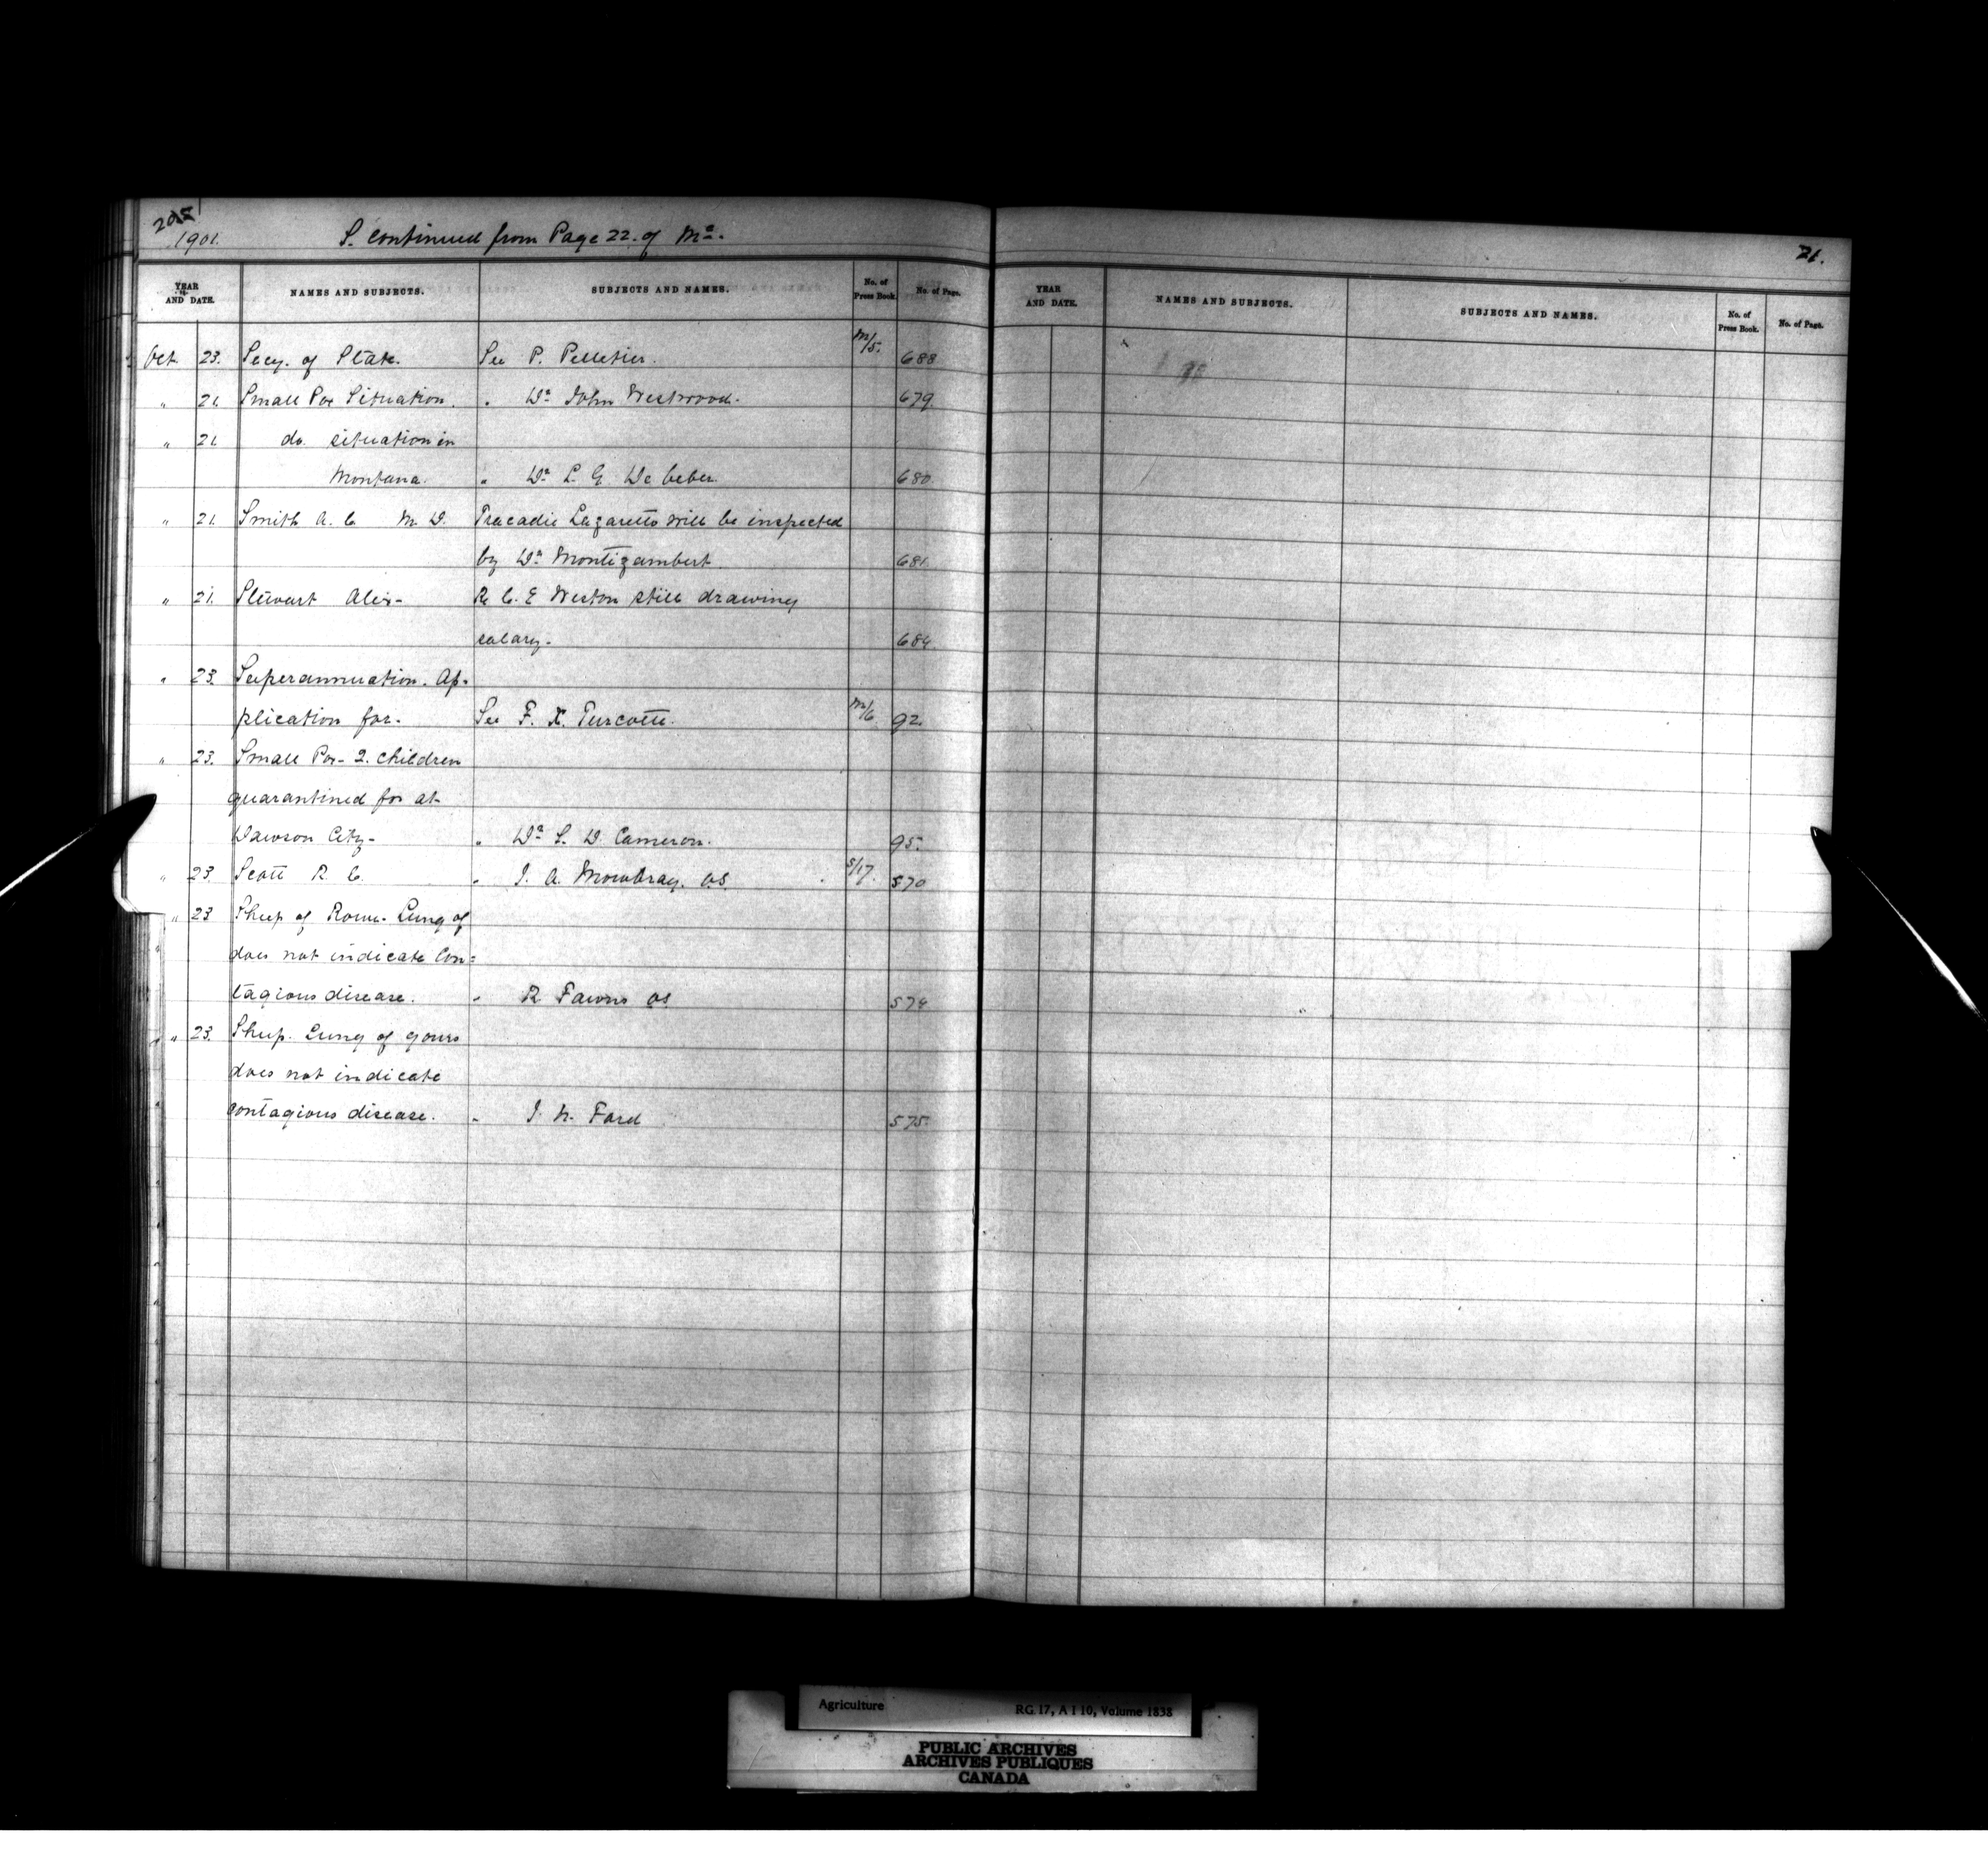 205
1901. S. Continued from Page 22. of Mc.
21.
YEAR AND DATE. NAMES AND SUBJECTS. SUBJECTS AND NAMES. No. of Press Book. No. of Page.
YEAR AND DATE. NAMES AND SUBJECTS. SUBJECTS AND NAMES. No. of Press Book. No. of Page.
Oct. 23. Secy. of State. See P. Pelletier. M/5. 688
" 21. Small Pox Situation. " Dr John Westwood. 679.
" 21 do. situation in
Montana. " Dr L. G. De Veber. 680.
" 21. Smith A. C. M. D. Tracadie Lazaretto will be inspected
by Dr Montizambert. 681.
" 21. Stewart Alex- Re C. E Weston still drawing
salary- 684
" 23. Superannuation. Ap-
plication for. See F. X. Turcotte. M/6. 92.
" 23. Small Pox- 2. children
quarantined for at
Dawson City- " Dr S. D. Cameron. 95.
" 23. Scott R. C. " J. A. Mowbray. VS. S/17. 570
" 23 Sheep of Rowe. Lung of
does not indicate Con=
tagious disease. " R Fawns VS 574
" 23. Sheep. Lung of yours
does not indicate
contagious disease. " J. N. Ford 575.
Agriculture RG 17, A I 10, Volume 1838
PUBLIC ARCHIVES
ARCHIVES PUBLIQUES
CANADA